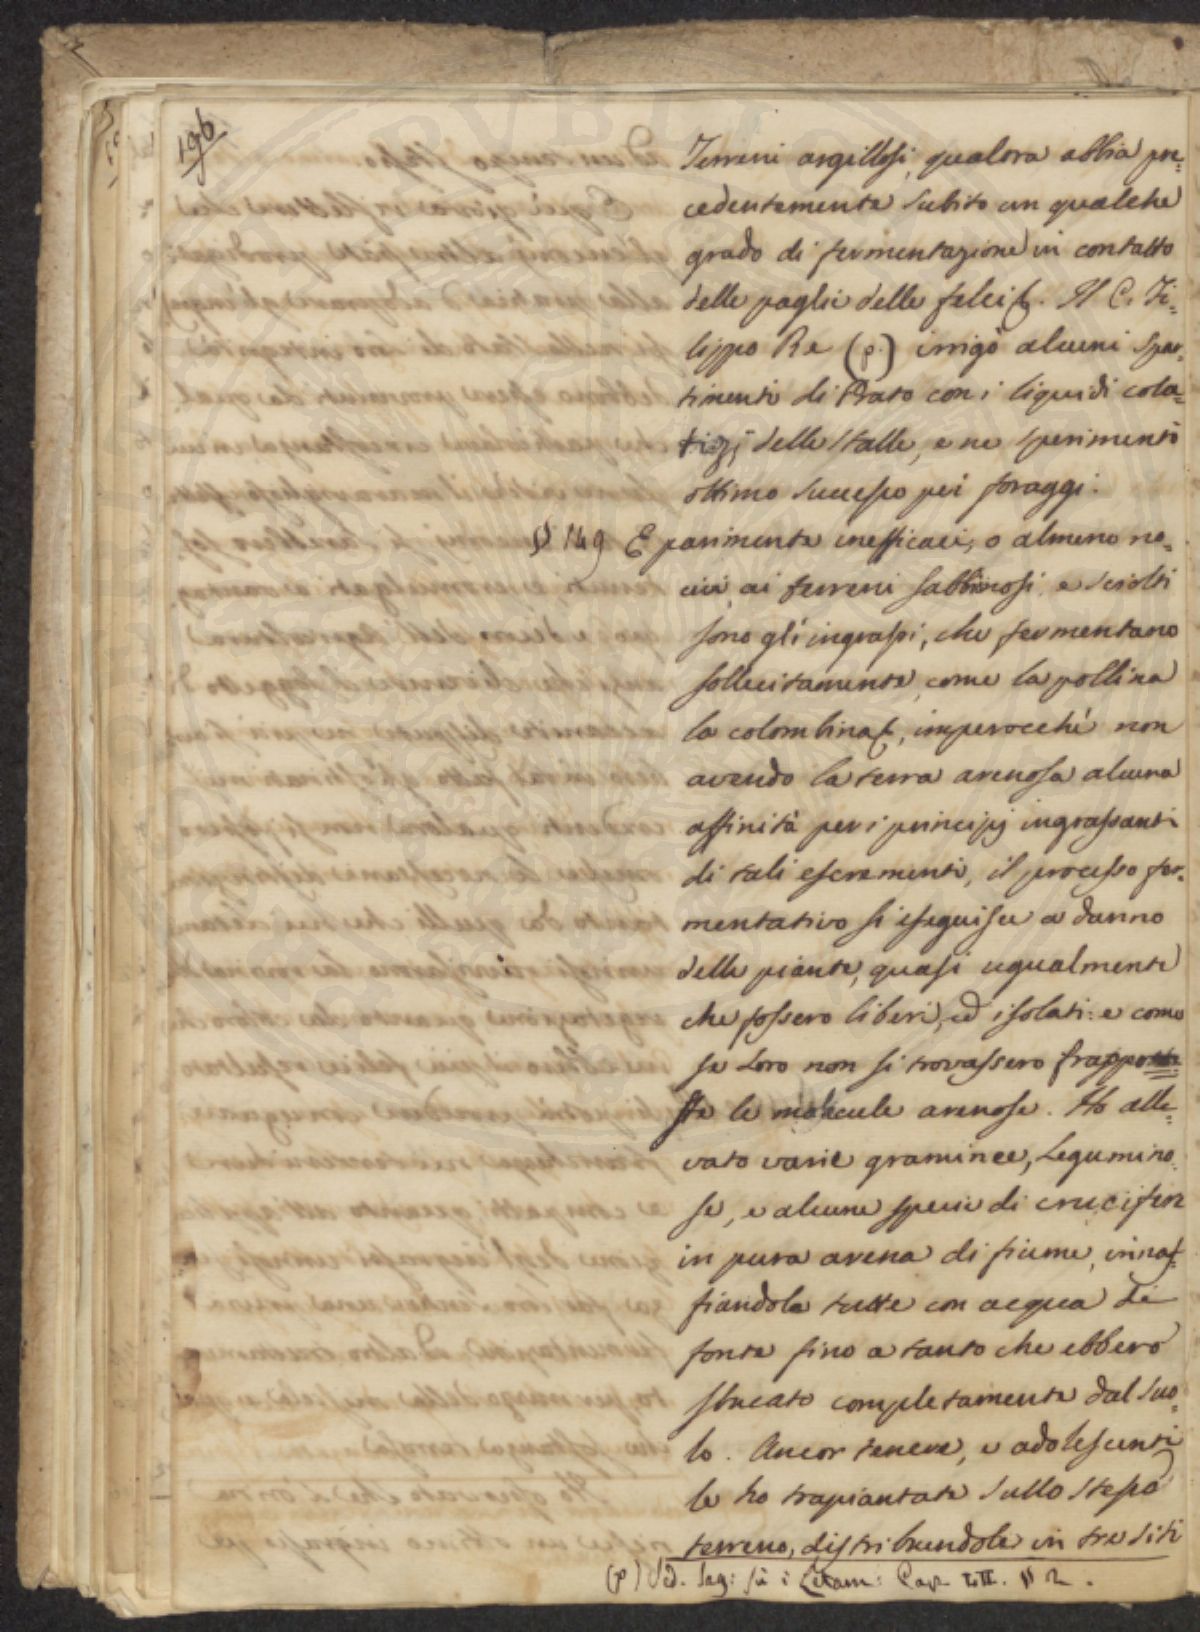 196
Terreni argillosi, qualora abbia pre=
cedentemente subito un qualche
grado di fermentazione in contatto
delle paglie delle felci &. Il C. Fi=
lippo Re (p.) irrigò alcuni spar=
timenti di Prato con i liquidi cola=
tizj delle stalle, e ne sperimentò
ottimo successo pei foraggi.
§ 149 E parimente inefficaci, o almeno no=
civi ai terreni sabbionosi, e sciolti
sono gl'ingrassi, che fermentano
sollecitamente, come la pollina
la colombina &, imperocchè non
avendo la terra arenosa alcuna
affinità per i principj ingrassanti
di tali escrementi, il processo fer=
mentativo si eseguisce a danno
delle piante, quasi ugualmente
che fossero liberi, ed isolati: e come
se loro non si trovassero frappo
ste le molecule arenose. Ho alle=
vato varie graminee, Legumino=
se, e alcune specie di crucifere
in pura arena di fiume, innaf=
fiandole tutte con acqua di
fonte fino a tanto che ebbero
sbucato completamente dal suo=
lo. Ancor tenere, e adolescenti
le ho trapiantate sullo stesso
terreno, distribuendole in tre siti
(p) Ved. Sag: su i Letam: Cap. III. § 2.